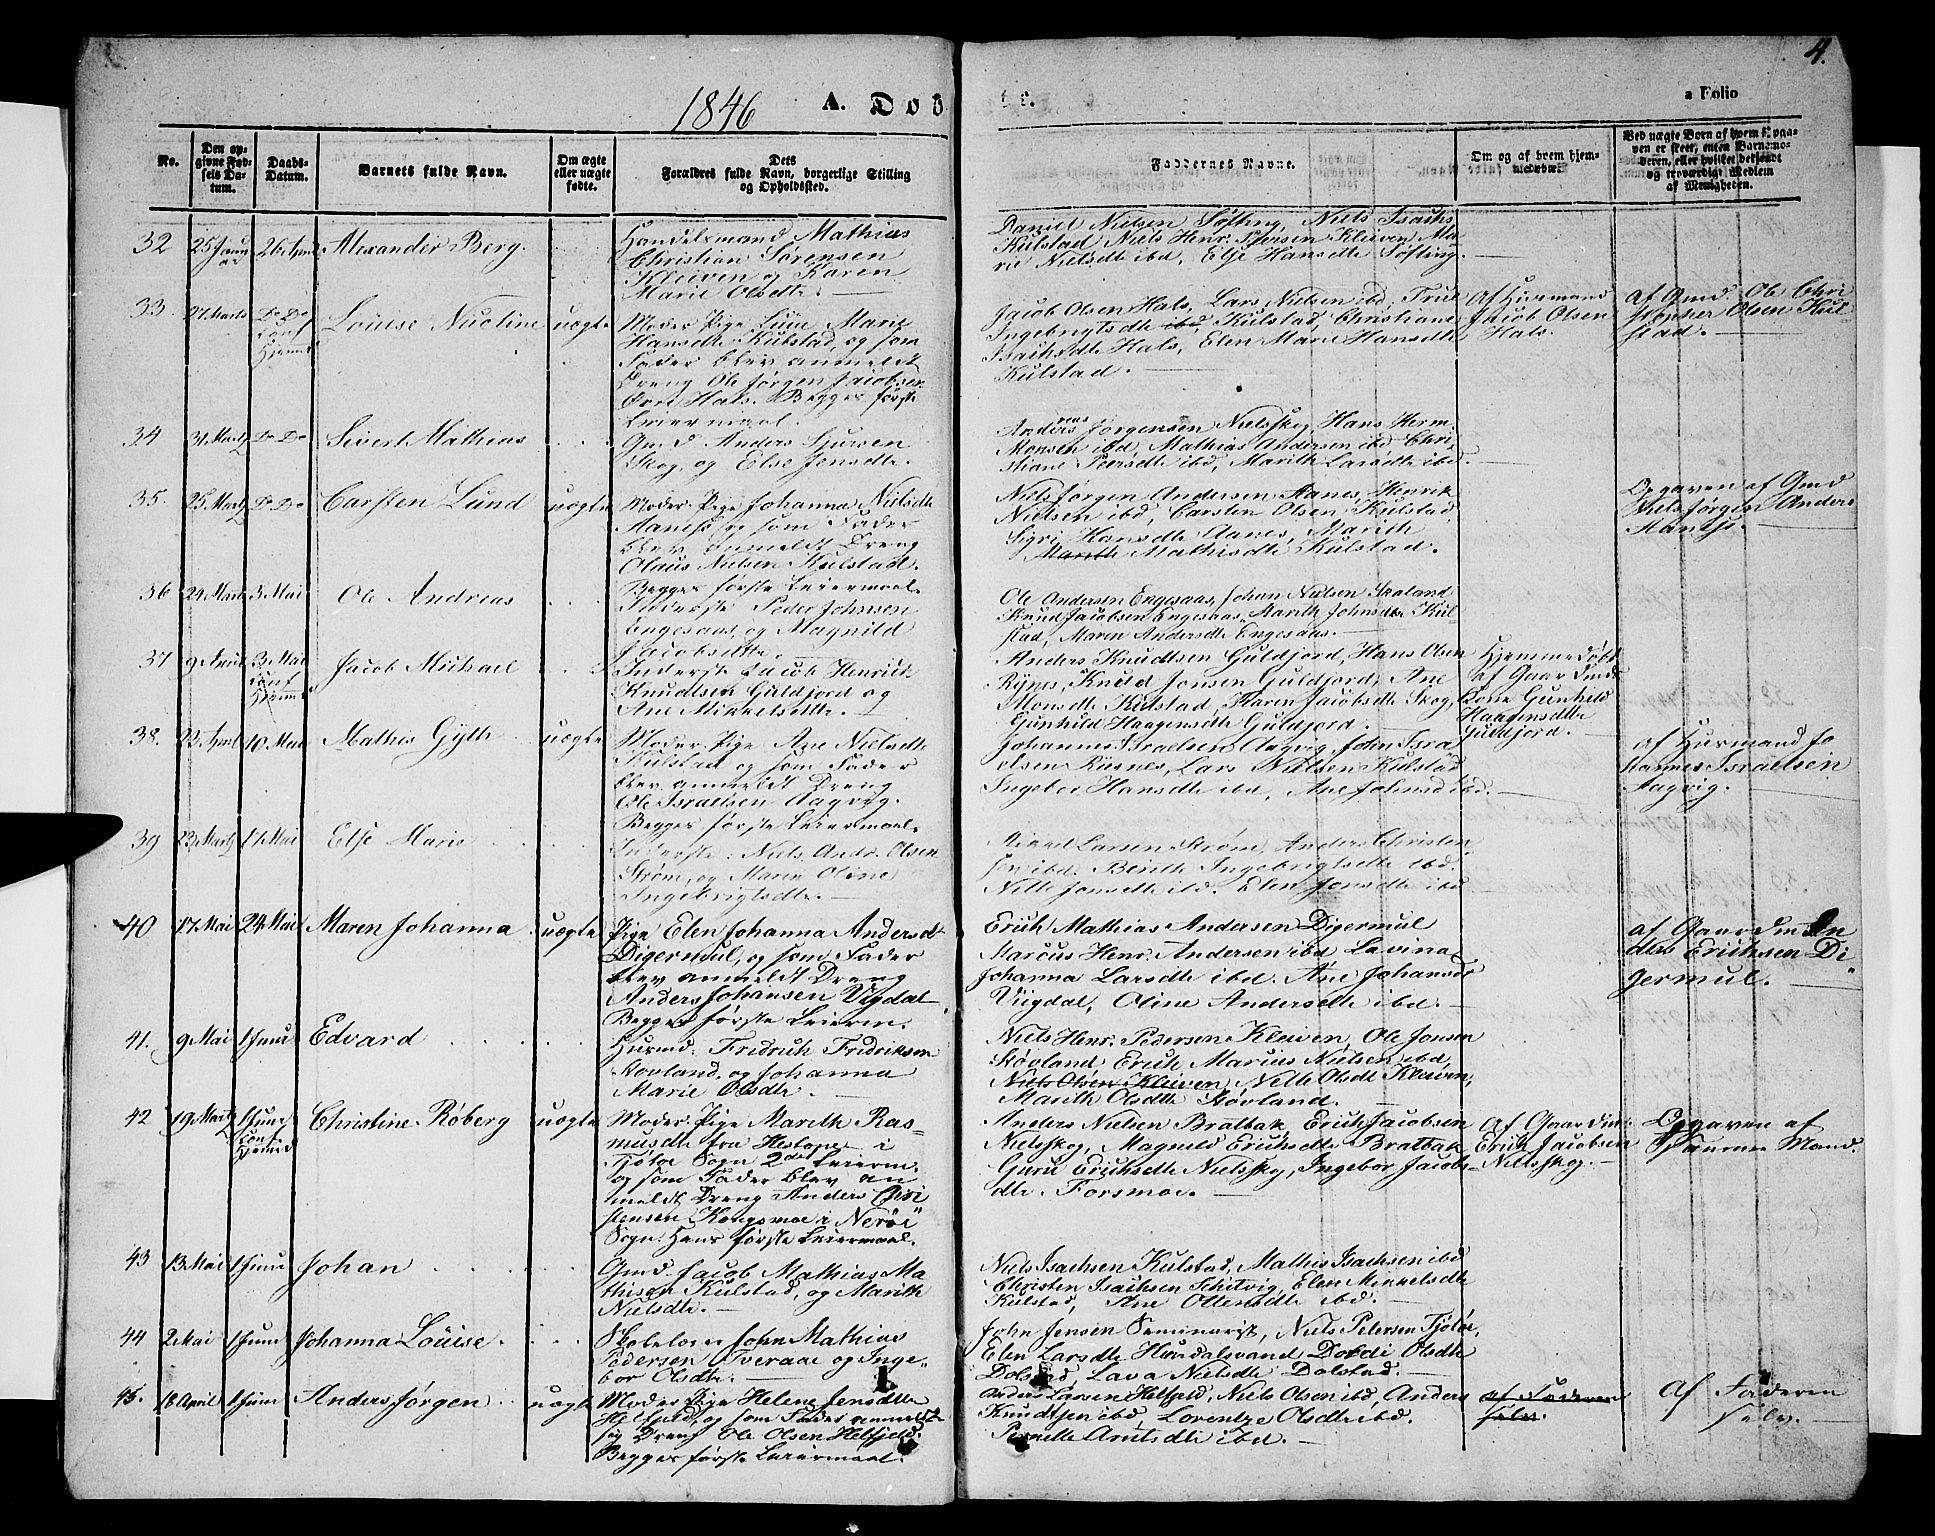 4.
1846 A. Dob te. a Folio
No.
Den op-
givne Fød-
sels Da-
tum.
Daabs-
Datum.
Barnets fulde Navn.
Om ægte
eller uægte
fødte.
Dets
Forældres fulde Navn, borgerlige Stilling
og Opholdssted.
Faddernes Navne.
Om og af hvem hjem-
medøbt.
Ved uægte Børn af hvem Opgaa-
ven er skeet, enten Barnemo-
deren, eller hvilket bekjendt
og troværdigt Medlem
af Menigheden.
32 25 Janu
ar 26 April Alexander Berg.
Handelsmand Mathias
Christian Sørensen
Kleiven og Karen
Marie Olsdtr.
Daniel Nielsen Søfting, Niels Isachs
Kulstad, Niels Henr: Pedersen Kleiven, Ma-
rie Nielsdtr ibd, Else Hansdtr Søfting.
33. 27 Marts Do Do
Conf
Hjemd
Louise Nicoline uægte
Moder: Pige Marie
Hansdtr Kulstad, og som
Fader blev anmeldt
Dreng Ole Jørgen Jacobsen
Hals. Begges første
Leiermaal.
Jacob Olsen Hals, Lars Nielsen ibd,
Ingebrigtsdtr ibd, Kulstad, Christiane
Isachsdtr Hals, Elen Marie Hansdtr
Kulstad.
Af Huusmand
Jacob Olsen
Hals.
Af Gmd. Ole Chri
stopher Olsen Kul
stad.
34 31 Marts Do Do Sivert Mathias
Gmd Anders Sjursen
Skog, og Else Jensdtr.
Andreas Jørgensen Nielsskog, Hans Herm.
Monsen ibd, Mathias Andersen ibd, Chri-
stiane Peersdtr ibd, Marith Larsdtr ibd.
35. 25 Marts Do Do Carsten Lund uægte
Moder: Pige Johanna Nielsdtr
og som Fader
blev anmeldt Dreng
Olaus Nielsen Kulstad.
Begges første Leiermaal.
Niels Jørgen Andersen Hanes, Henrik
Nielsen ibd, Carsten Olsen Kulstad,
Sigri Hansdtr Aanes, Marith
Marith Mathisdtr Kulstad.
Opgaven af Gmd
Niels Jørgen Anders
36 24 Marts 3 Mai Ole Andreas
Inderste Peder Johnsen
Engesaas, og Magnild
Jacobsdtr.
Ole Andersen Engesaas, Johan Nielsen Skaland
Knud Jacobsen Engesaas, Marith Johnsdtr Kul
stad, Maren Andersdtr Engesaas.
37 9 April 3 Mai
Conf
Hjemd
Jacob Michael
Inderste Jacob Henrik
Knudtsen Guldfjord og
Ane Mikkelsdtr.
Anders Knudtsen Guldfjord, Hans Olsen
Rynes, Knud Jonsen Guldfjord, Ane
Monsdtr Kulstad, Karen Jacobsdtr Skog,
Gunhild Haagensdtr Guldfjord.
Hjemmedøbt
af Gaardmds
Kone Gunhild
Haagensdtr
Guldfjord.
38. 23 April 10 Mai Mathis Gjth uægte
Moder: Pige Ane Nielsdtr
Kulstad og som Fader
blev anmeldt Dreng
Ole Israelsen Aagvig.
Begges første Leiermaal.
Johannes Israelsen Aagvig, John Isra
elsen Rusnes, Lars Nielsen Kulstad
Ingebor Hansdtr ibd, Ane Johnsd ibd.
af Huusmand Jo
hannes Israelsen
Aagvig.
39 23 Marts 17 Mai Else Marie
Inderste: Niels Andr. Olsen
Strøm, og Maren Oline
Ingebrigtsdtr.
Mikkel Larsen Strøm, Anders Christen
sen ibd. Berith Ingebrigtsdtr ibd.
Nille Jonsdtr ibd. Elen Jonsdtr ibd
40 17 Mai 24 Mai Maren Johanna uægte
Pige Elen Johanna Andersdt
Digermul, og som Fader
blev anmeldt Dreng
Anders Johansen Vigdal
Begges første Leierm.
Erich Mathias Andersen Digermul
Marcus Henr: Andersen ibd Lavina
Johanna Larsdtr ibd. Ane Johansdr
Viigdal, Oline Andersdtr ibd.
af Gaardmd An
ders Erichsen Di
germul.
41. 9 Mai 1 Juni Edvard
Huusmd: Fridrich Fridriksen
Støvland, og Johanna
Marie Olsdtr.
Niels Henr: Pedersen Kleiven, Ole Jonsen
Støvland, Erich Marius Nielsen ibd,
Niels Olsen Kleiven, Nelle Olsdt Kleiven,
Marith Olsdtr Støvland.
42 19 Marts 1 Juni
Conf
Hjemd
Christine Røberg uægte
Moder: Pige Marith Ras-
musdtr fra i
Tjøtøe Sogn 2det Leierm.
og som Fader blev an
meldt Dreng Anders Chri
stensen Kongsmoe i Nerøe
Sogn. Hans første Leiermaal.
Anders Nielsen Bratbak, Erich Jacobsen
Nielsskog, Magnild Erichsdtr Bratbak
Guru Erichsdtr Nielsskog, Ingebor Jacobs-
dtr Forsmoe.
Af Gaardmd:
Erich Jacobsen
Nielsskog.
Opgaven af
samme Mand.
43 13 Mai 1 Juni Johan
Gmd. Jacob Mathias Ma
thisen Kulstad, og Marith
Nielsdtr.
Niels Isachsen Kulstad, Mathis Isachsen ibd
Christen Isachsen Schitvig, Elen Mikkelsdtr
Kulstad, Ane Ottersdtr ibd.
44 2 Mai 1 Juni Johanna Louise.
Skolelærer John Mathias
Pedersen Tveraae og Inge-
bor Olsdtr.
John Jensen Seminarist, Niels Petersen Tjøtøe,
Elen Larsdtr Hundalsvand Dordi Olsdtr
Dolstad, Lava Nielsdtr Dolstad.
45. 18 April 1 Juni Anders Jørgen uægte
Moder: Pige Helene Jensdtr
og som Fader anmeldte
sig Dreng Ole Olsen Helfjeld.
Begges første Leiermaal.
Anders Larsen Helfjeld, Niels Olsen ibd, Anders
Knudtsen ibd, Lorentze Olsdtr ibd.
Pernelle Arntsdtr ibd.
af Faderen
selv.
Af Faderen
selv.